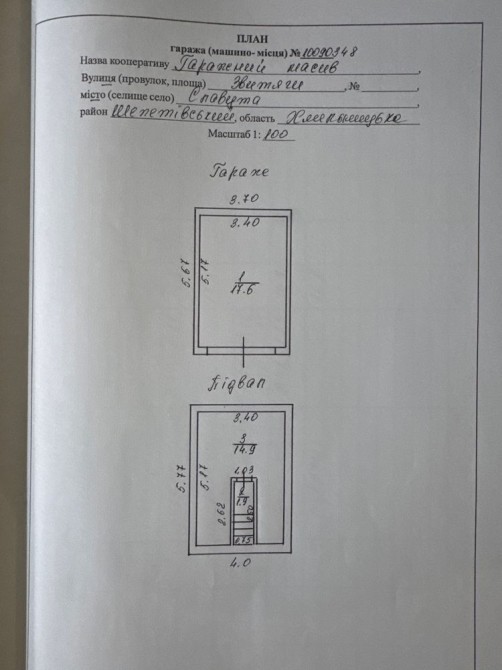 ПЛАН
гаража (машино- місця) № 10090348
Назва кооперативу Гаражний масив,
Вулиця (провулок, площа) Звитяги, №,
місто (селище село) Славута,
район Шепетівський, область Хмельницька
Масштаб 1: 100
Гараж
3.70
3.40
5.67
5.17
1
17.6
Підвал
3.40
3
14.9
5.77
5.17
1.03
2
1.9
2.62
0.75
4.0